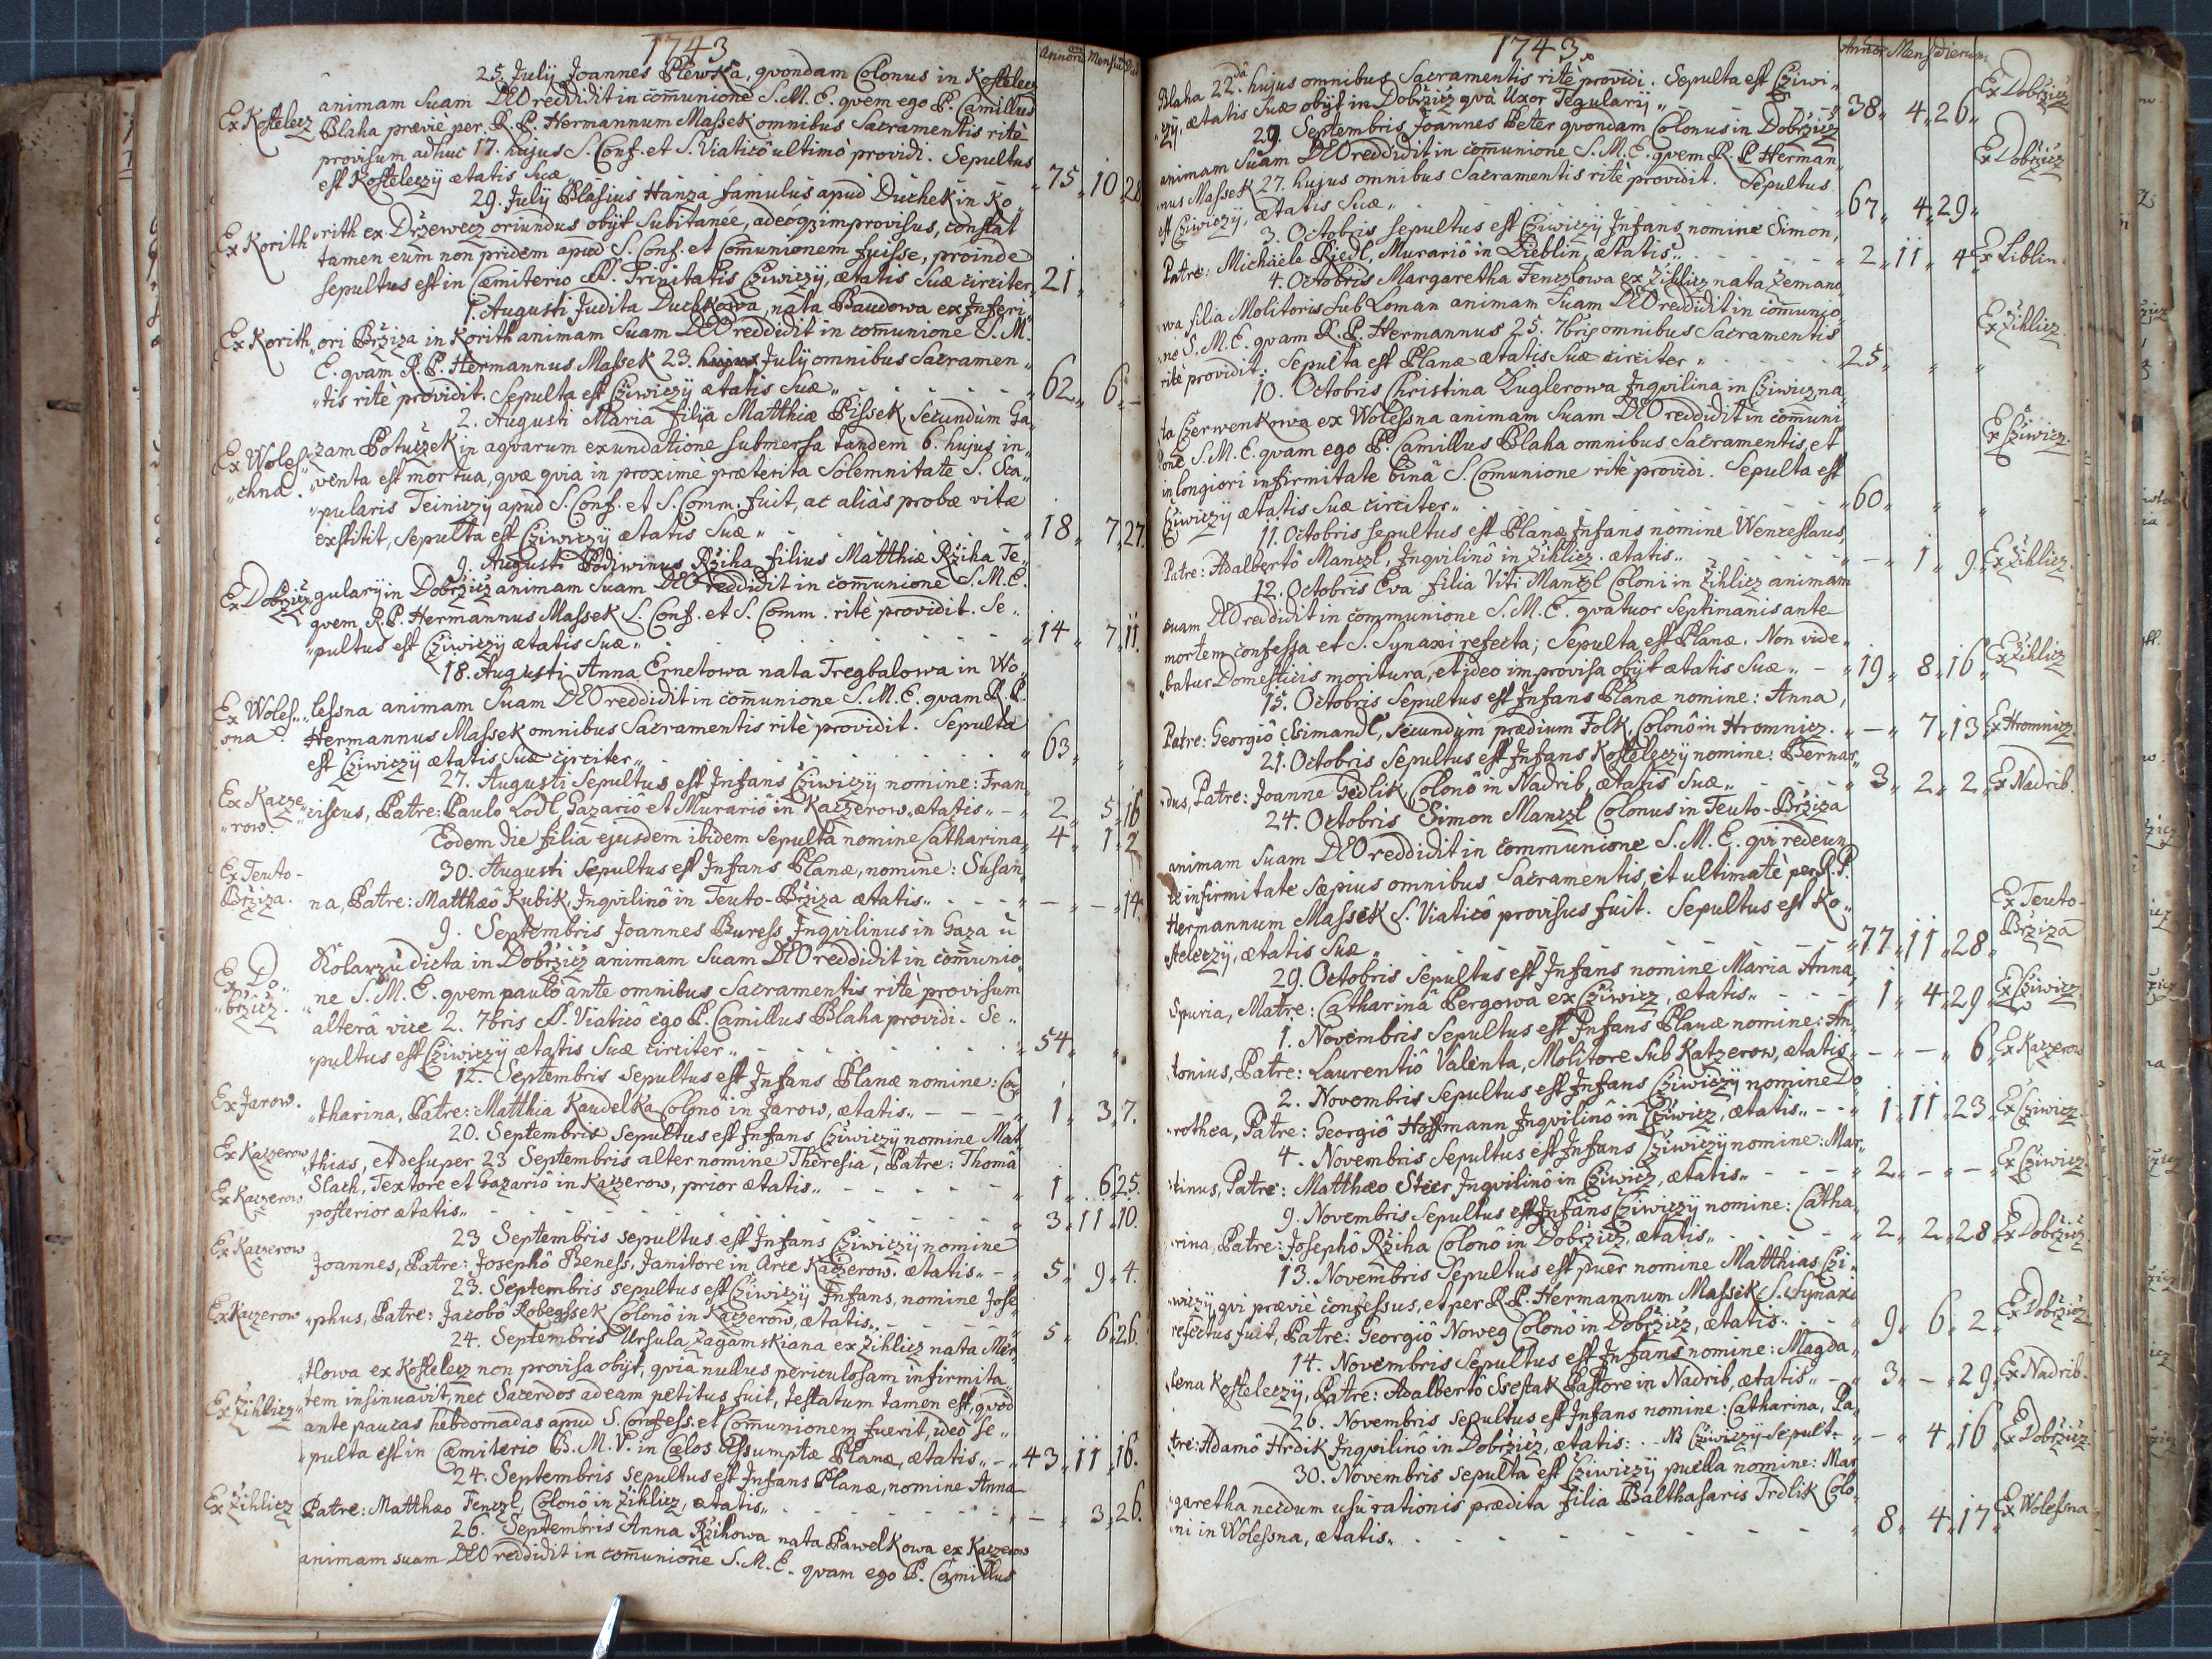 1743
Annorū Mensiū Dierū
25. Julij Joannes Plewka, qvondam Colonus in Kostelecz
animam Suam DEO reddidit in com̄unione S. M. E. qvem ego P. Camillus
Ex Kostelecz Blaha præviè per R. P. Hermannum Massek omnibus Sacramentis ritè
provisum adhuc 17. hujus S. Conf. et S. Viaticô ultimò providi. Sepultus
est Kosteleczij ætatis Suæ 75 10 28
29. Julij Blasius Hanza famulus apud Duchek in Ko„
Ex Korith „rith ex Držewecz oriundus obijt Subitaneè, adeóq; improvisus, constat
tamen eum non pridem apud S. Conf. et Com̄unionem fuisse, proinde
sepultus est in Cæmiterio SS. Trinitatis Cziwiczij, ætatis Suæ circiter 21
1. Augusti Judita Duchkowa, nata Baudowa ex Inferi„
Ex Korith „ori Bržiza in Korith animam Suam DEO reddidit in com̄unione S. M.
E. qvam R. P. Hermannus Massek 23. hujus Julij omnibus Sacramen„
„tis ritè providit. Sepulta est Cziwiczij ætatis Suæ„ 62 6 –
2. Augusti Maria filia Matthiæ Pissek Secundùm Ga„
Ex Woles „zam Potuczek in aqvarum exundatione submersa tandem 6. hujus in„
„chna. „venta est mortua, qvæ qvia in proximè præterita Solemnitate S. Sca„
„pularis Teiniczij apud S. Conf. et S. Comm. fuit, ac aliàs probæ vitæ
exstitit, Sepulta est Cziwiczij ætatis Suæ„ 18 7 27.
9. Augusti Podiwinus Ržiha filius Matthiæ Ržiha Te„
Ex Dobržicz „gularij in Dobržicz animam Suam DEO reddidit in com̄unione S. M. E.
qvem R. P. Hermannus Massek S. Conf. et S. Comm. ritè providit. Se„
„pultus est Cziwiczij ætatis Suæ„ 14 7 11
18. Augusti Anna Ernetowa nata Tregbalowa in Wo„
Ex Woles„ „lessna animam Suam DEO reddidit in com̄unione S. M. E. qvam R. P.
sna. Hermannus Massek omnibus Sacramentis ritè providit. Sepulta
est Cziwiczij ætatis Suæ circiter„ 63
27. Augusti Sepultus est Infans Cziwiczij nomine: Fran„
Ex Kacze„ „ciscus, Patre: Paulo Lodl Gazario et Murariô in Kaczerow, ætatis„ 2 5 16
„row. Eodem die filia ejusdem ibidem Sepulta nomine Catharina„ 4 1 2
Ex Teuto- 30. Augusti Sepultus est Infans Planæ, nomine: Susan„
Bržiza. na, Patre: Matthæô Kubik, Inqvilinô in Teuto-Bržiza ætatis„ – – 14.
9. Septembris Joannes Buress Inqvilinus in Gaza ù
Kolarzù dicta in Dobržicz animam Suam DEO reddidit in com̄unio„
Ex Do„ ne S. M. E. qvem paulò ante omnibus Sacramentis ritè provisum
„bržicz. alterâ vice 2. 7bris SS. Viatico ego P. Camillus Blaha providi. Se„
„pultus est Cziwiczij ætatis Suæ circiter„ 54
12. Septembris Sepultus est Infans Planæ nomine: Ca„
Ex Jarow. „tharina, Patre: Matthia Kaudelka Colonô in Jarow, ætatis„ 1 3 7.
20. Septembris Sepultus est Infans Cziwiczij nomine Mat„
Ex Kaczerow „thias, et desuper 23 Septembris alter nomine Theresia, Patre: Thomâ
Slach, Textore et Gazariô in Kaczerow, prior ætatis„ 1 6 25.
Ex Kaczerow posterior ætatis„ 3 11 10.
23 Septembris sepultus est Infans Cziwiczij nomine
Ex Kaczerow Joannes, Patre: Josephô Beness, Janitore in Arce Kaczerow. ætatis„ 5 9 4.
23. Septembris sepultus est Cziwiczij Infans, nomine Jose„
Ex Kaczerow „phus, Patre: Jacobô Robegssek Colonô in Kaczerow, ætatis„ 5 6 26.
24. Septembris Ursula Zagamskiana ex Žihlicz nata Mer„
„tlowa ex Kostelecz non provisa obijt, qvia nullus periculosam infirmita„
Ex Žihlicz „tem insinuavit, nec Sacerdos ad eam petitus fuit, testatum tamen est, qvòd
ante paucas hebdomadas apud S. Confess. et Com̄unionem fuerit, ideò Se„
„pulta est in Cæmiterio B. M. V. in Cœlos Assumptæ Planæ, ætatis„ 43 11 16.
24. Septembris sepultus est Infans Planæ, nomine Anna
Ex Žihlicz Patre: Matthæo Fenczl, Colonô in Žihlicz, ætatis„ – 3 26.
26. Septembris Anna Ržihowa nata Pawelkowa ex Kaczerow
animam suam DEO reddidit in com̄unione S. M. E. qvam ego P. Camillus
1743
Annor Mens dierum
Blaha 22dâ hujus omnibus Sacramentis ritè providi. Sepulta est Cziwi„
„czij, ætatis Suæ obijt in Dobržicz qvà Uxor Tegularij„ 38 4 26 Ex Dobržicz
29. Septembris Joannes Peter qvondam Colonus in Dobržicz
animam Suam DEO reddidit in com̄unione S. M. E. qvem R. P. Herman„ Ex Dobržicz
„nus Massek 27. hujus omnibus Sacramentis ritè providit. Sepultus
est Cziwiczij, ætatis Suæ„ 67 4 29
3. Octobris sepultus est Cziwiczij Infans nomine Simon,
Patre: Michaele Riedl, Murariô in Lieblin, ætatis„ 2 11 4 Ex Liblin.
4. Octobris Margaretha Fenczlowa ex Žihlicz nata Zemano„
„wa filia Molitoris sub Loman animam Suam DEO reddidit in com̄unio„
„ne S. M. E. qvam R. P. Hermannus 25. 7bris omnibus Sacramentis Ex Žihlicz.
ritè providit: Sepulta est Planæ ætatis Suæ circiter„ 25
10. Octobris Christina Kuglerowa Inqvilina in Cziwicz na„
„ta Czerwenkowa ex Wolessna animam Suam DEO reddidit in com̄uni„
„one S. M. E. qvam ego P. Camillus Blaha omnibus Sacramentis, et Ex Cziwicz.
in longiori infirmitate binâ S. Comunione ritè providi. Sepulta est
Cziwiczij ætatis Suæ circiter„ 60
11. Octobris sepultus est Planæ Infans nomine Wenceslaus,
Patre: Adalbertô Manczl, Inqvilinô in Žihlicz. ætatis„ – 1 9 Ex Žihlicz.
12. Octobris Eva filia Viti Manczl Coloni in Žihlicz animam
suam DEO reddidit in communione S. M. E. qvatuor Septimanis ante
mortem confessa et S. Synaxi refecta; Sepulta est Planæ. Non vide„
„batur Domesticis moritura, et ideo improvisa obijt ætatis Suæ„ 19 8 16 Ex Žihlicz
15. Octobris Sepultus est Infans Planæ nomine: Anna,
Patre: Georgiô Ssimandl, secundùm prædium Folk, Colonô in Hromnicz. – 7 13 Ex Hromnicz.
21. Octobris Sepultus est Infans Kosteleczij nomine: Bernar„
„dus, Patre: Joanne Gedlik, Colonô in Nadrib, ætatis Suæ„ 3 2 2 Ex Nadrib.
24. Octobris Simon Manczl Colonus in Teuto-Bržiza
animam Suam DEO reddidit in communione S. M. E. qvi redeun„
te infirmitate Sæpius omnibus Sacramentis, et ultimatè per R. P.
Hermannum Massek S. Viaticô provisus fuit. Sepultus est Ko„ Ex Teuto-
steleczij, ætatis Suæ„ 77 11 28 Bržiza
29. Octobris sepultus est Infans nomine Maria Anna,
Spuria, Matre: Catharinâ Pergowa ex Cziwicz, ætatis„ 1 4 29 Ex Cziwicz
1. Novembris Sepultus est Infans Planæ nomine: An„
„tonius, Patre: Laurentiô Valenta, Molitore Sub Katzerow, ætatis„ – – 6 Ex Kaczerow
2. Novembris Sepultus est Infans Cziwiczij nomine Do„
„rothea, Patre: Georgiô Hoffmann Inqvilinô in Cziwicz, ætatis„ 1 11 23 Ex Cziwicz.
4. Novembris Sepultus est Infans Cziwiczij nomine: Mar„
„tinus, Patre: Matthæo Steer Inqvilinô in Cziwicz, ætatis„ 2 – – Ex Cziwicz.
9. Novembris Sepultus est Infans Cziwiczij nomine: Catha„
„rina, Patre: Josephô Ržiha Colonô in Dobržicz, ætatis„ 2 2 28 Ex Dobržicz.
13. Novembris Sepultus est puer nomine Matthias Czi„
„wiczij, qvi præviè confessus, et per R. P. Hermannum Massek S. Synaxi
refectus fuit, Patre: Georgiô Noweg Colonô in Dobržicz, ætatis„ 9 6 2 Ex Dobržicz
14. Novembris Sepultus est Infans nomine: Magda„
„lena Kosteleczij, Patre: Adalbertô Ssestak Pastore in Nadrib, ætatis„ 3 – 29 Ex Nadrib.
26. Novembris sepultus est Infans nomine: Catharina, Pa„
„tre: Adamô Hrdik Inqvilinô in Dobržicz, ætatis: NB Cziwiczij Sepult. – 4 16 Ex Dobržicz.
30. Novembris sepulta est Cziwiczij puella nomine: Mar„
„garetha necdum usu rationis prædita filia Balthasaris Trdlik Colo„
„ni in Wolessna, ætatis„ 8 4 17 Ex Wolessna